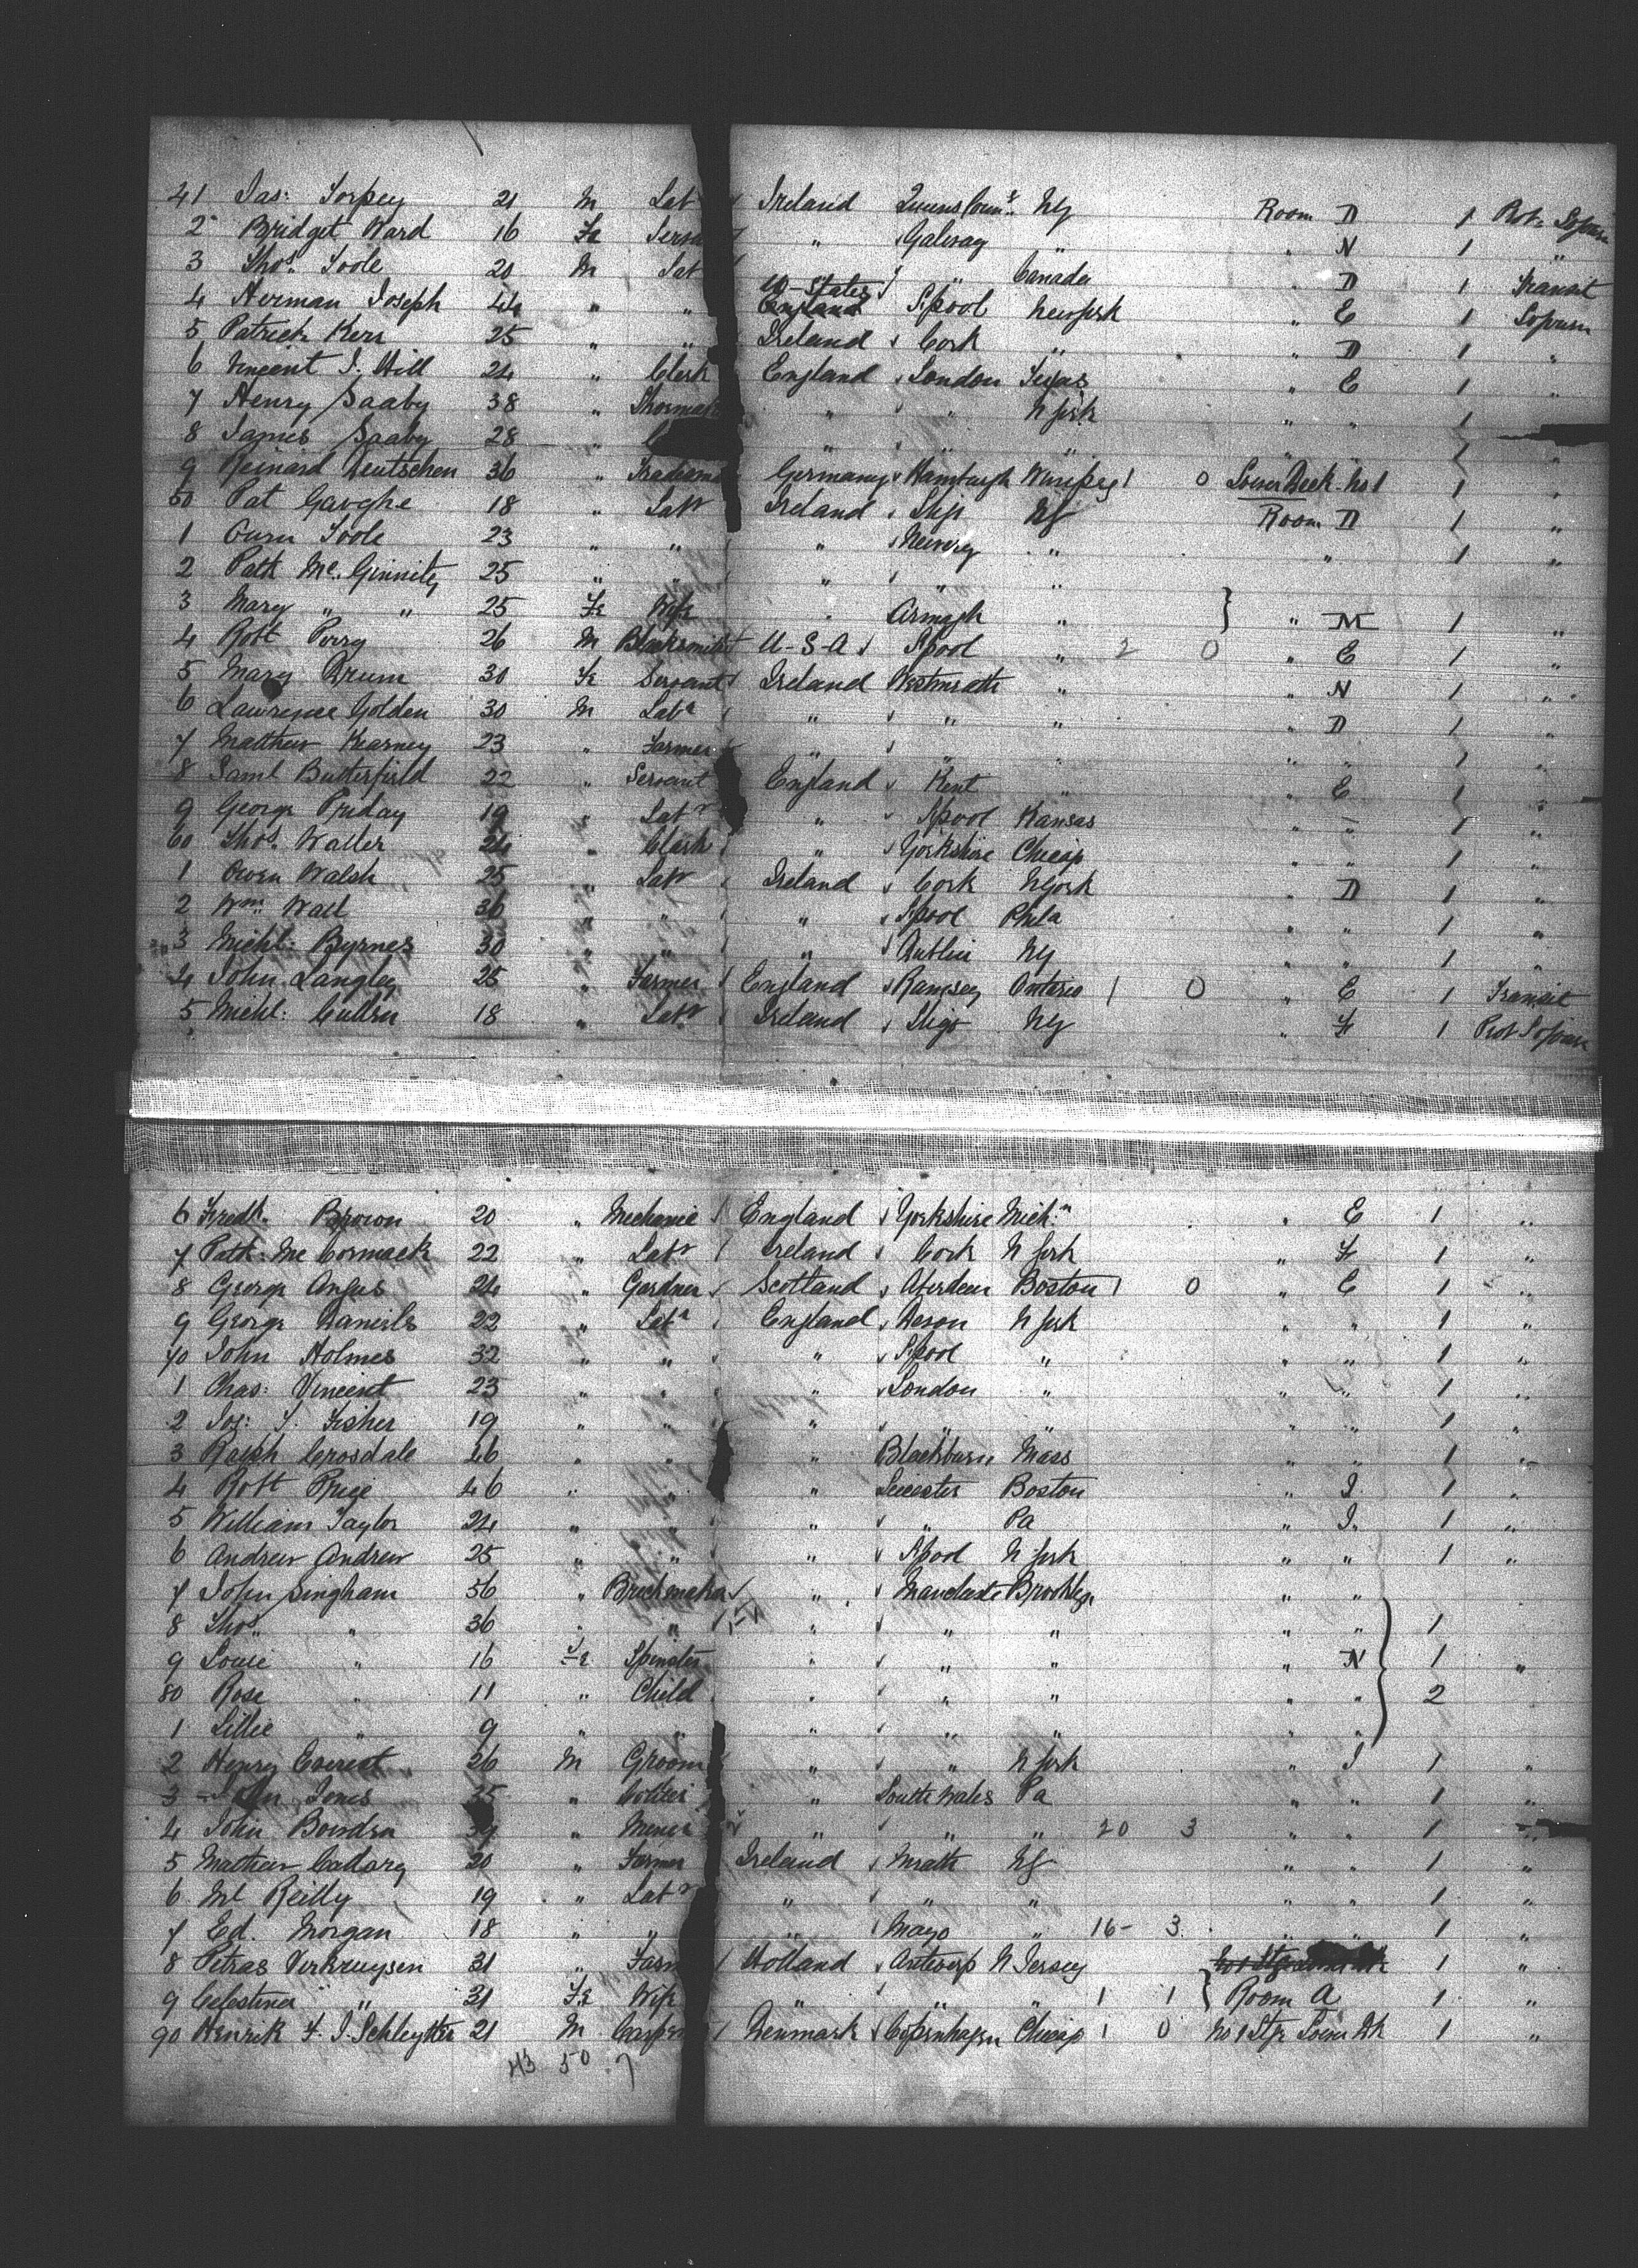 41 Jas: Torpey 21 M Lab Ireland Queens Coun: NY Room D 1 Prot: Sojourn
2 Bridget Ward 16 Fe Serva " Galway " " N 1 "
3 Thos. Toole 20 M Lab " " Canada " D 1 Transit
4 Herman Joseph 44 " " U States England L'pool New York " E 1 Sojourn
5 Patrick Kerr 25 " " Ireland Cork " " D 1 "
6 Vincent J. Hill 24 " Clerk England London Texas " E 1 "
7 Henry Saaby 38 " Shoemak " " N York " " 1 "
8 James Saaby 28 " " " " " " 1 "
9 Reinard Deutschen 36 " Tradesma Germany Hamburgh Winipeg 1 0 Lower Deck No 1 1 "
50 Pat Gaughe 18 " Labr Ireland Sligo NY Room D 1 "
1 Owen Toole 23 " " " Newry " " 1 "
2 Patk Mc. Ginnity 25 " " " " "
3 Mary " " 25 Fe Wife " Armagh " } " M 1 "
4 Robt Perry 26 M Blacksmith U-S-A L'pool " 2 0 " E 1 "
5 Mary Brum 30 Fe Servant Ireland Westmeath " " N 1 "
6 Lawrence Golden 30 M Labr " " " " D 1 "
7 Matthew Kearney 23 " Farmer " " " " " 1 "
8 Saml Butterfield 22 " Servant England Kent " " E 1 "
9 George Priday 19 " Labr " L'pool Kansas " " 1 "
60 Thos. Waller 24 " Clerk " Yorkshire Chicago " " 1 "
1 Owen Walsh 25 " Labr Ireland Cork N York " D 1 "
2 Wm. Wall 36 " " " L'pool Phla " " 1 "
3 Michl: Byrnes 30 " " " Dublin NY " " 1 "
4 John Langley 25 " Farmer England Ramsey Ontario 1 0 " E 1 Transit
5 Michl: Cullen 18 " Labr Ireland Sligo NY " F 1 Prot Sojourn
6 Fredk. Brown 20 " Mechanic England Yorkshire Mich:n " E 1 "
7 Patk: Mc Cormack 22 " Labr Ireland Cork N York " F 1 "
8 George Angus 24 " Gardner Scotland Aberdeen Boston 1 0 " E 1 "
9 George Daniels 22 " Labr England Devon N York " " 1 "
70 John Holmes 32 " " " L'pool " " " 1 "
1 Chas: Vincent 23 " " " London " " " 1 "
2 Jos: J. Fisher 19 " " " " " " " 1 "
3 Ralph Crosdale 26 " " " Blackburn Mass " " 1 "
4 Robt Price 46 " " " Leicester Boston " I 1 "
5 William Taylor 24 " " " " Pa " I. 1 "
6 Andrew Andrew 25 " " " L'pool N York " " 1 "
7 John Singham 56 " Brickmaker " Manchester Brooklyn " "
8 Thos. " 36 " " " " " " " 1
9 Louie " 16 Fe Spinster " " " " N 1 "
80 Rose " 11 " Child " " " " " 2
1 Lillie " 9 " " " " " " "
2 Henry Everest 26 M Groom " " N York " I 1 "
3 Jones 35 " Collier " South Wales Pa " " 1 "
4 John Bowden " Miner " " " 20 3 " " 1 "
5 Mathew Cadary 20 " Farmer Ireland Meath NY " " 1 "
6 Ml Reilly 19 " Labr " " " " " 1 "
7 Ed. Morgan 18 " " " Mayo " 16- 3 " " 1 "
8 Petras Verkruysen 31 " Farm Holland Antwerp N Jersey 1 "
9 Celestina " 31 Fe Wife " " " 1 1 } Room A 1 "
90 Henrik F. J. Schleytter 21 M Carpen Denmark Copenhagen Chicago 1 0 No 1 Stge Lower Dk 1 "
43 50 7